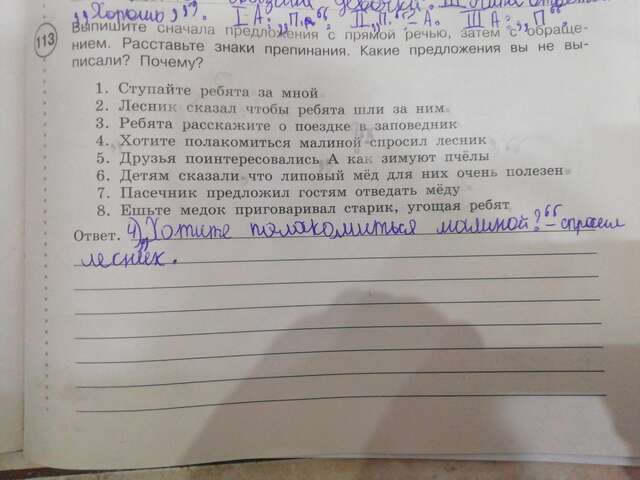 „Хорошо".
I А: „П". II „П" – А. III А: „П
113
Выпишите сначала предложения с прямой речью, затем с обраще-
нием. Расставьте знаки препинания. Какие предложения вы не вы-
писали? Почему?
1. Ступайте ребята за мной
2. Лесник сказал чтобы ребята шли за ним
3. Ребята расскажите о поездке в заповедник
4. Хотите полакомиться малиной спросил лесник
5. Друзья поинтересовались А как зимуют пчёлы
6. Детям сказали что липовый мёд для них очень полезен
7. Пасечник предложил гостям отведать мёду
8. Ешьте медок приговаривал старик, угощая ребят
Ответ. 4) „Хотите полакомиться малиной?" – спросил
лесник.